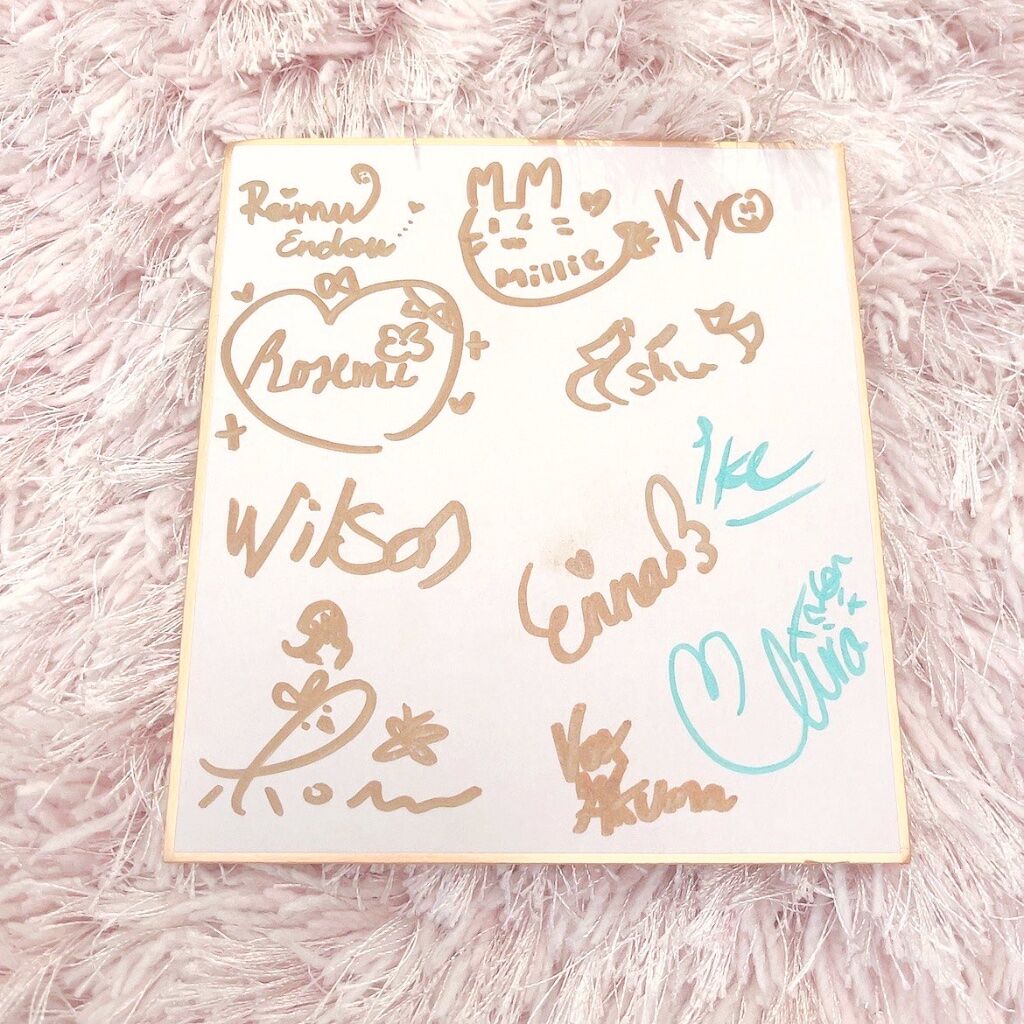 Reimu
Endou
Millie
Kyo
Rosemi
Shu
Ike
Wilson
Enna
Elira
Pom
Vox
Akuma